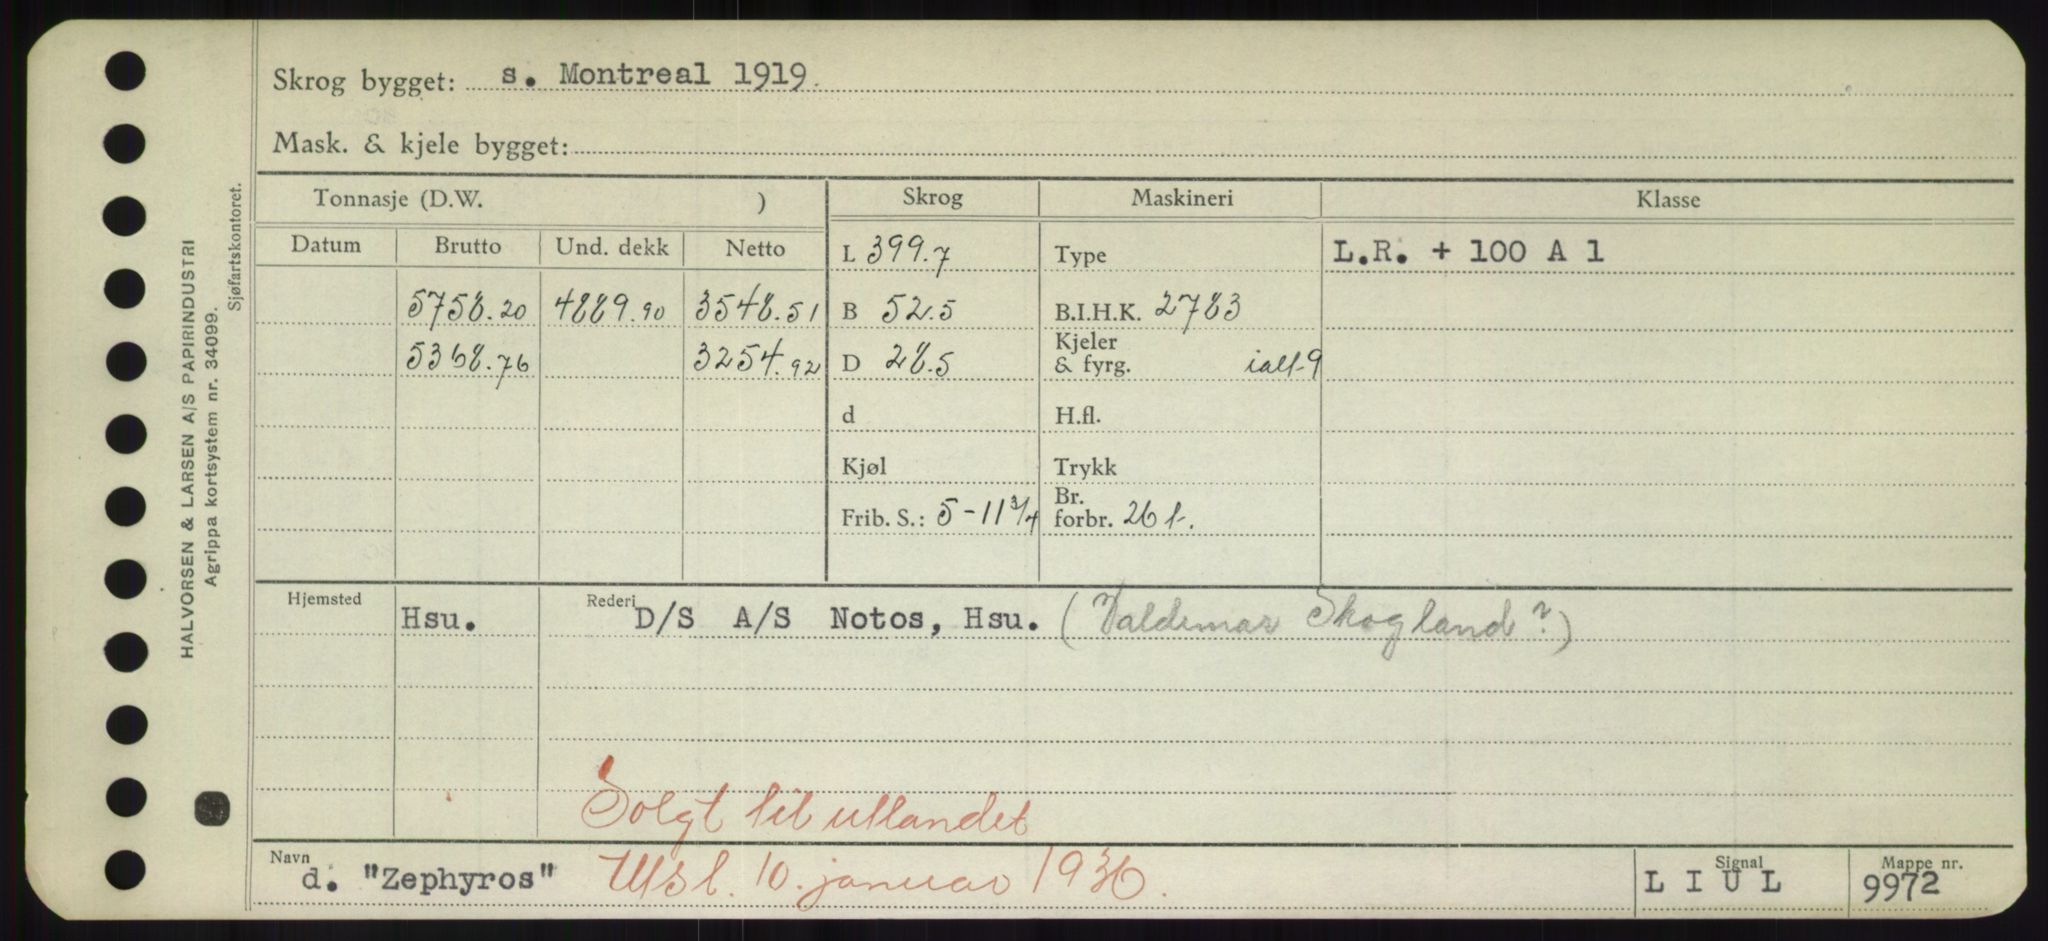 Skrog bygget: s. Montreal 1919.
Mask. & kjele bygget:
Tonnasje (D.W. ) Skrog Maskineri Klasse
Datum Brutto Und. dekk Netto L 399.7 Type L.R. + 100 A 1
5758.20 4889.90 3548.51 B 52.5 B.I.H.K. 2783
5368.76 3254.92 D 28.5 Kjeler & fyrg. ialt 9
d H.fl.
Kjøl Trykk
Frib. S.: 5-11 3/4 Br. forbr. 26 t.
Hjemsted Hsu. Rederi D/S A/S Notos, Hsu. (Valdemar Skogland?)
Solgt til utlandet
Navn d. "Zephyros" Utsl. 10. januar 1936. Signal L I U L Mappe nr. 9972
HALVORSEN & LARSEN A/S PAPIRINDUSTRI
Agrippa kortsystem nr. 34099.
Sjøfartskontoret.